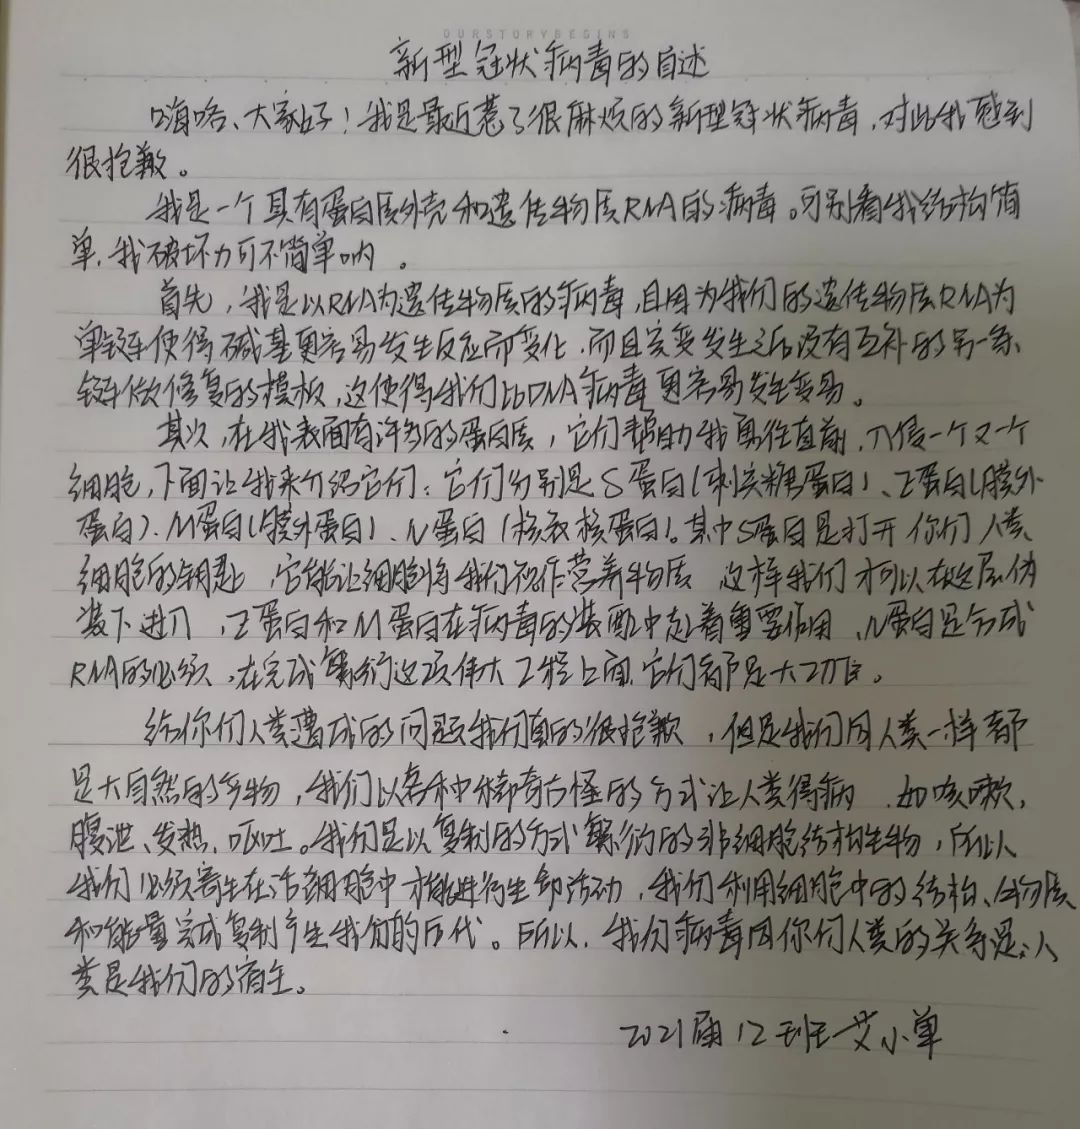 OURSTORYBEGINS
新型冠状病毒的自述
嗨咯、大家好！我是最近惹了很麻烦的新型冠状病毒,对此我感到
很抱歉。
我是一个具有蛋白质外壳和遗传物质RNA的病毒。可别看我结构简
单,我破坏力可不简单呐。
首先,我是以RNA为遗传物质的病毒,且因为我们的遗传物质RNA为
单链使得碱基更容易发生反应而变化,而且突变发生之后没有互补的另一条
链做修复的模板,这使得我们比DNA病毒更容易发生变易。
其次,在我表面有许多的蛋白质,它们帮助我勇往直前,入侵一个又一个
细胞,下面让我来介绍它们:它们分别是S蛋白(刺突糖蛋白)、E蛋白(膜外
蛋白)、M蛋白(膜外蛋白)、N蛋白(核衣核蛋白)。其中S蛋白是打开你们人类
细胞的钥匙,它能让细胞将我们视作营养物质 这样我们才可以在这层伪
装下进入,E蛋白和M蛋白在病毒的装配中起着重要作用,N蛋白是合成
RNA的必须,在完成繁衍这项伟大工程上面,它们都是大功臣。
给你们人类遭成的问题我们真的很抱歉,但是我们同人类一样都
是大自然的产物,我们以各种稀奇古怪的方式让人类得病,如咳嗽,
腹泄、发热、呕吐。我们是以复制的方式繁衍的非细胞结构生物,所以
我们必须寄生在活细胞中才能进行生命活动,我们利用细胞中的结构、物质
和能量完成复制产生我们的后代。所以,我们病毒同你们人类的关系是:人
类是我们的宿主。
2021届12班 艾小单